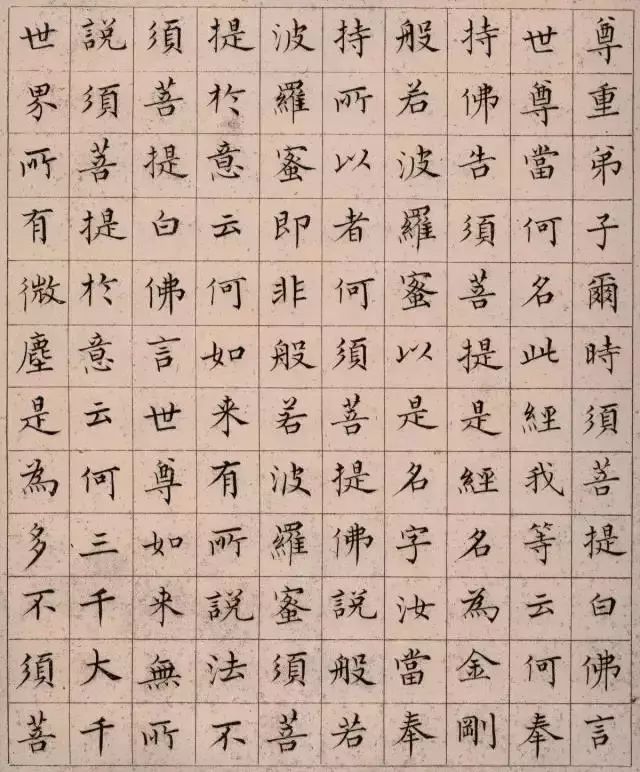 尊重弟子爾時須菩提白佛言
世尊當何名此經我等云何奉
持佛告須菩提是經名為金剛
般若波羅蜜以是名字汝當奉
持所以者何須菩提佛說般若
波羅蜜即非般若波羅蜜須菩
提於意云何如来有所說法不
須菩提白佛言世尊如来無所
說須菩提於意云何三千大千
世界所有微塵是為多不須菩